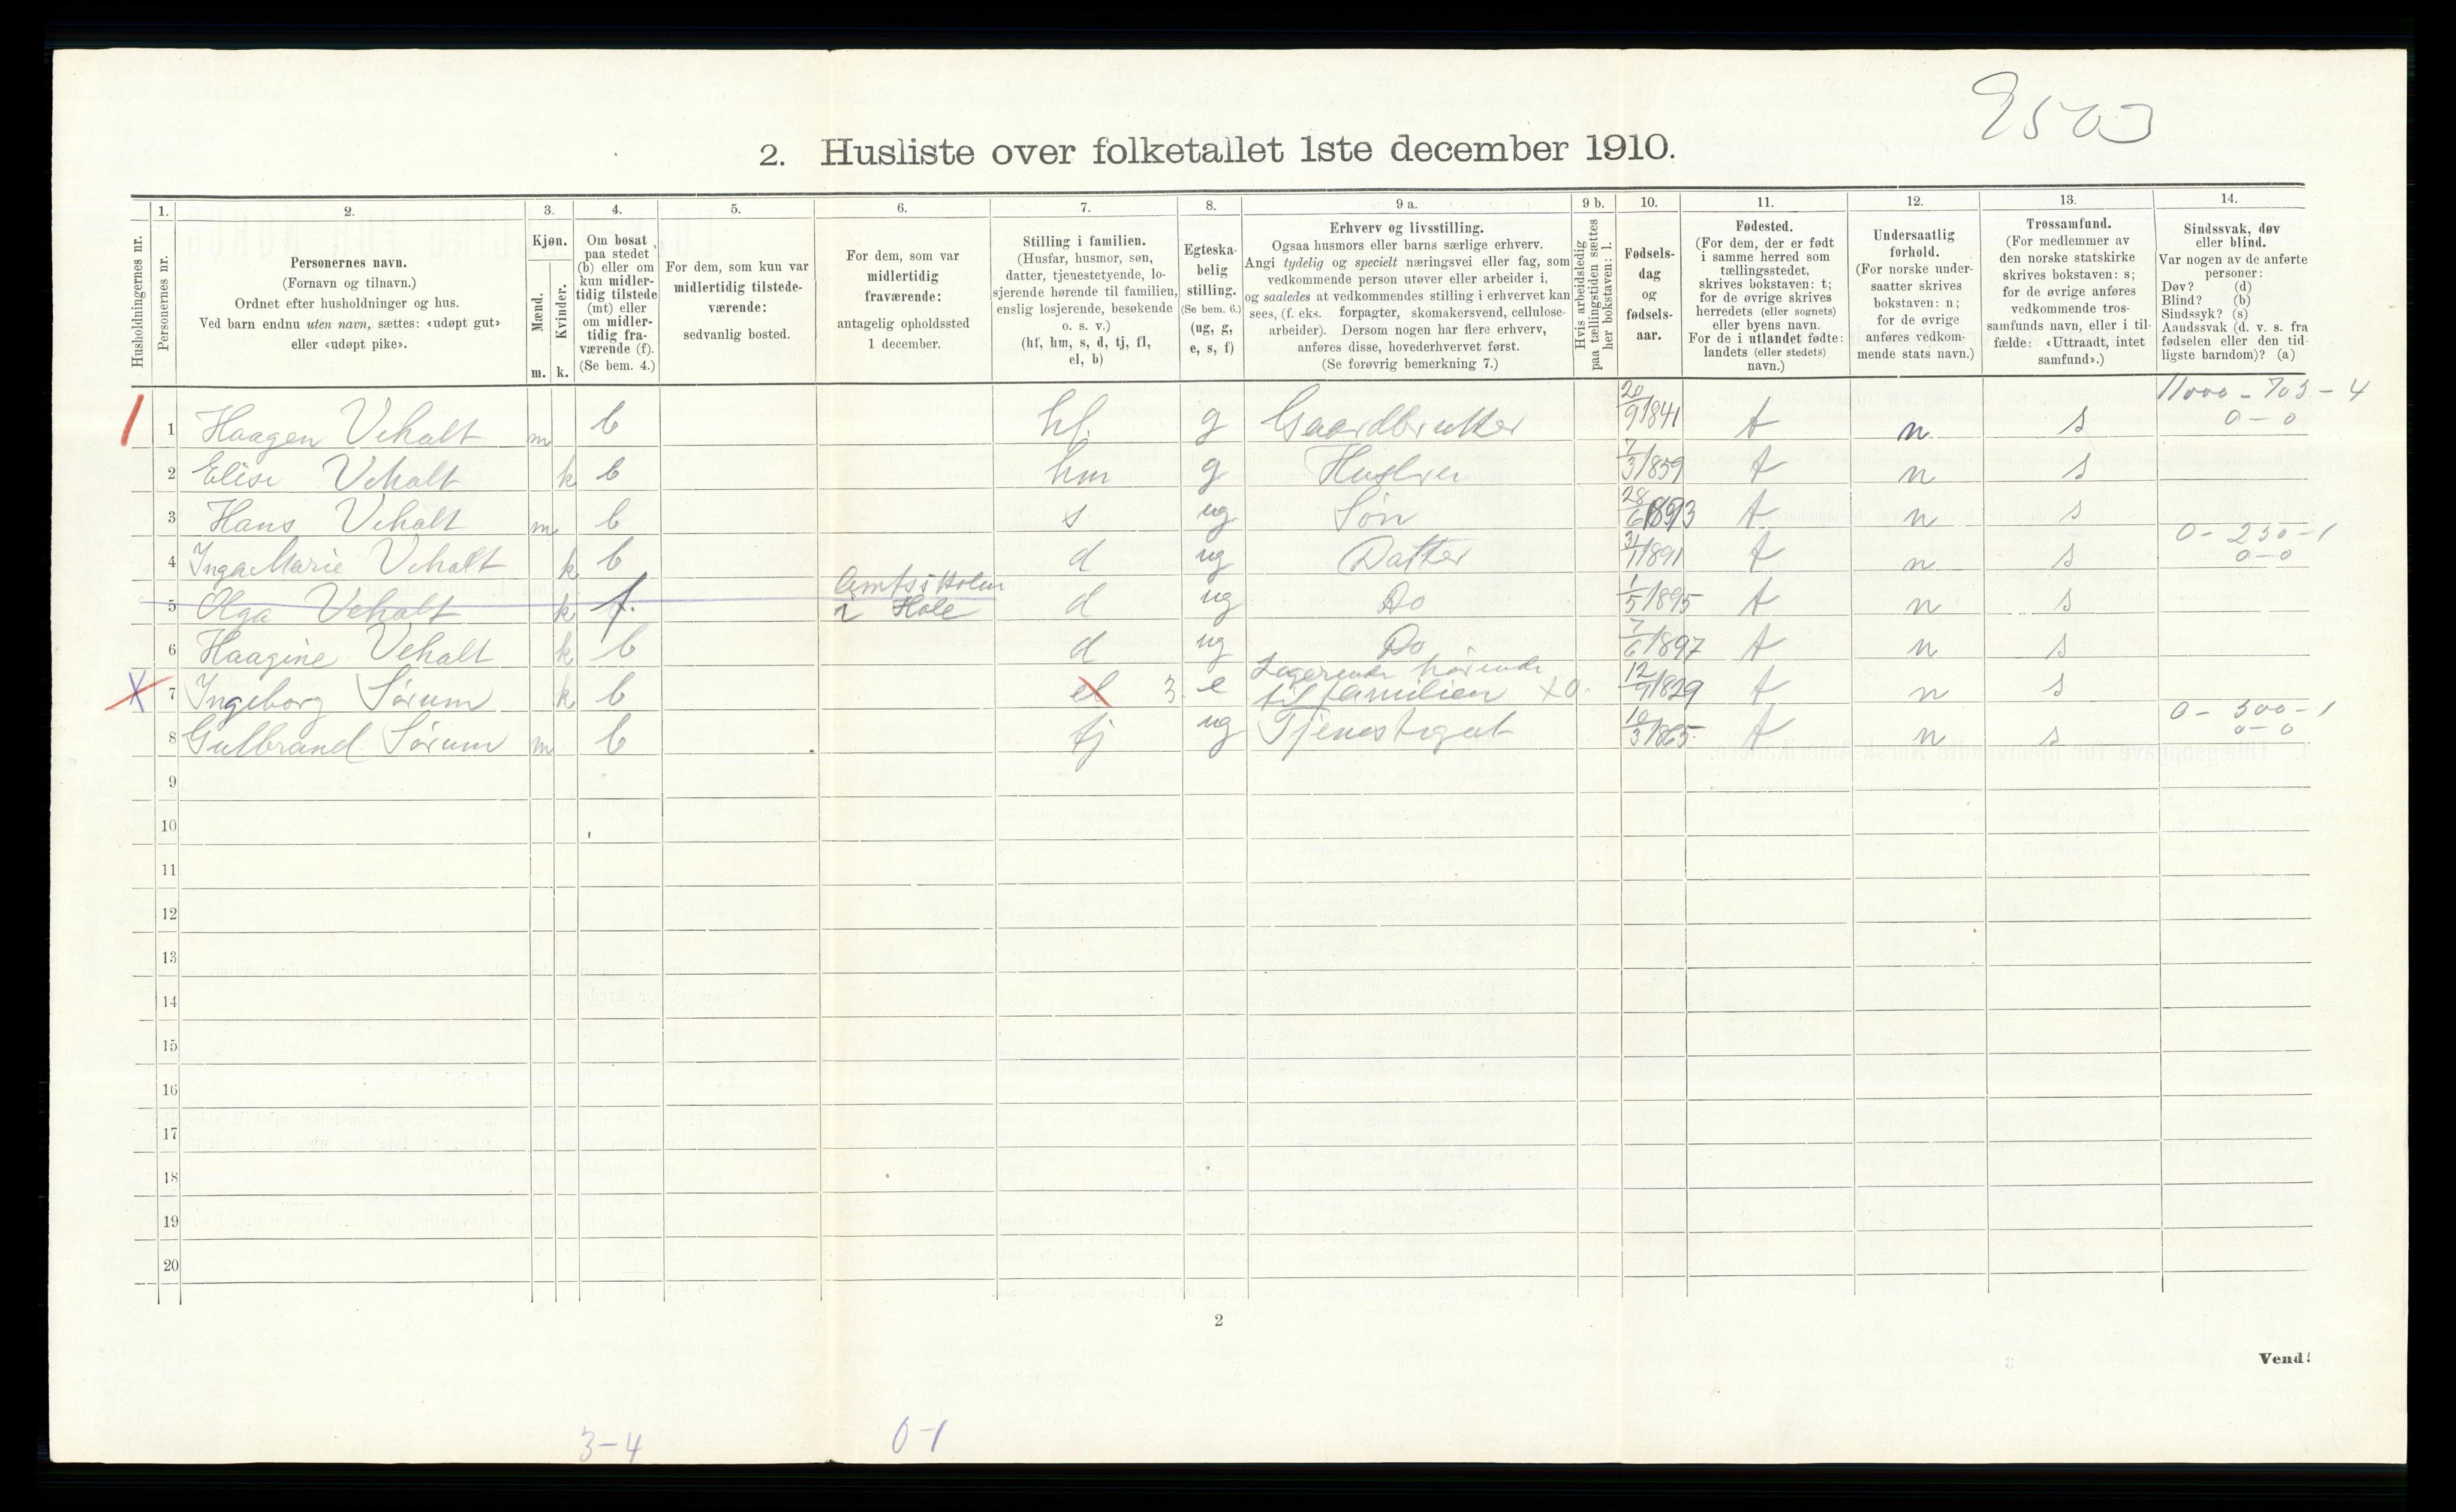 9503
2. Husliste over folketallet 1ste december 1910.
Husholdningernes nr.
1.
Personernes nr.
2.
Personernes navn.
(Fornavn og tilnavn.)
Ordnet efter husholdninger og hus.
Ved barn endnu uten navn, sættes: «udøpt gut»
eller «udøpt pike».
3.
Kjøn.
Mænd.
Kvinder.
m. k.
4.
Om bosat
paa stedet
(b) eller om
kun midler-
tidig tilstede
(mt) eller
om midler-
tidig fra-
værende (f).
(Se bem. 4.)
5.
For dem, som kun var
midlertidig tilstede-
værende:
sedvanlig bosted.
6.
For dem, som var
midlertidig
fraværende:
antagelig opholdssted
1 december.
7.
Stilling i familien.
(Husfar, husmor, søn,
datter, tjenestetyende, lo-
sjerende hørende til familien,
enslig losjerende, besøkende
o. s. v.)
(hf, hm, s, d, tj, fl,
el, b)
8.
Egteska-
belig
stilling.
(Se bem. 6.)
(ug, g,
e, s, f)
9 a.
Erhverv og livsstilling.
Ogsaa husmors eller barns særlige erhverv.
Angi tydelig og specielt næringsvei eller fag, som
vedkommende person utøver eller arbeider i,
og saaledes at vedkommendes stilling i erhvervet kan
sees, (f. eks. forpagter, skomakersvend, cellulose-
arbeider). Dersom nogen har flere erhverv,
anføres disse, hovederhvervet først.
(Se forøvrig bemerkning 7.)
9 b.
Hvis arbeidsledig
paa tællingstiden sættes
her bokstaven: l.
10.
Fødsels-
dag
og
fødsels-
aar.
11.
Fødested.
(For dem, der er født
i samme herred som
tællingsstedet,
skrives bokstaven: t;
for de øvrige skrives
herredets (eller sognets)
eller byens navn.
For de i utlandet fødte:
landets (eller stedets)
navn.)
12.
Undersaatlig
forhold.
(For norske under-
saatter skrives
bokstaven: n;
for de øvrige
anføres vedkom-
mende stats navn.)
13.
Trossamfund.
(For medlemmer av
den norske statskirke
skrives bokstaven: s;
for de øvrige anføres
vedkommende tros-
samfunds navn, eller i til-
fælde: «Uttraadt, intet
samfund».)
14.
Sindssvak, døv
eller blind.
Var nogen av de anførte
personer:
Døv? (d)
Blind? (b)
Sindssyk? (s)
Aandssvak (d. v. s. fra
fødselen eller den tid-
ligste barndom)? (a)
1 Haagen Vehalt m b hf. g Gaardbruker 20/9 1841 t n s 11000 - 703 - 4
0 - 0
2 Elise Vehalt k b hm g Hustru 7/3 1859 t n s
3 Hans Vehalt m b s ug Søn 28/6 1893 t n s
4 Inga Marie Vehalt k b d ug Datter 31/1 1891 t n s 0 - 230 - 1
0 - 0
5 Olga Vehalt k f. i Hole d ug Do 1/5 1895 t n s
6 Haagine Vehalt k b d ug Do 7/6 1897 t n s
X 7 Ingeborg Sørum k b el 3. e Logerende hørende
til familien X0. 12/9 1829 t n s
8 Gulbrand Sørum m b tj ug Tjenestegut 10/3 1865 t n s 0 - 300 - 1
0 - 0
9
10
11
12
13
14
15
16
17
18
19
20
2
Vend!
3-4
0-1